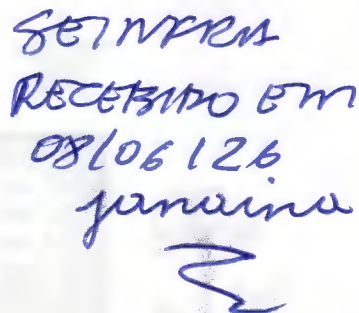 SEINFRA
RECEBIDO EM
08/06/26
janaina